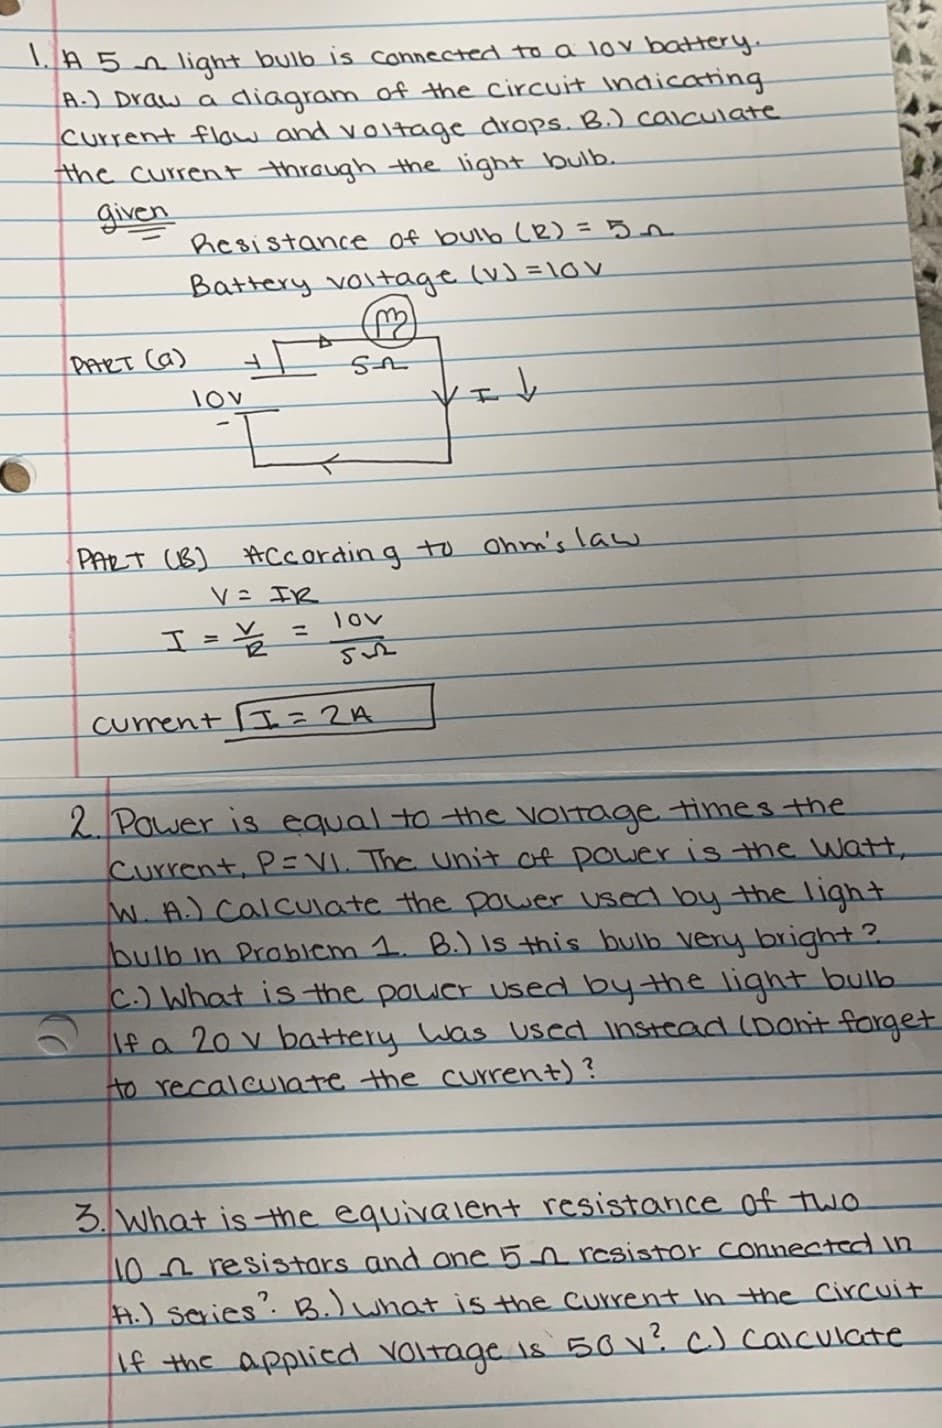 1. A 5 Ω light bulb is connected to a 10v battery.
A.) Draw a diagram of the circuit indicating
current flow and voltage drops. B.) calculate
the current through the light bulb.
given
Resistance of bulb (R) = 5 Ω
Battery voltage (V) = 10V
PART (a)
+
5Ω
10V
I ↓
-
PART (B) According to Ohm's law
V = IR
I = V/R = 10V/5Ω
current I = 2A
2. Power is equal to the voltage times the
current, P = VI. The unit of power is the Watt,
W. A.) Calculate the power used by the light
bulb in Problem 1. B.) Is this bulb very bright?
C.) What is the power used by the light bulb
if a 20 v battery was used instead (Don't forget
to recalculate the current)?
3. What is the equivalent resistance of two
10 Ω resistors and one 5 Ω resistor connected in
A.) series? B.) what is the current in the circuit
if the applied voltage is 50 v? C.) Calculate